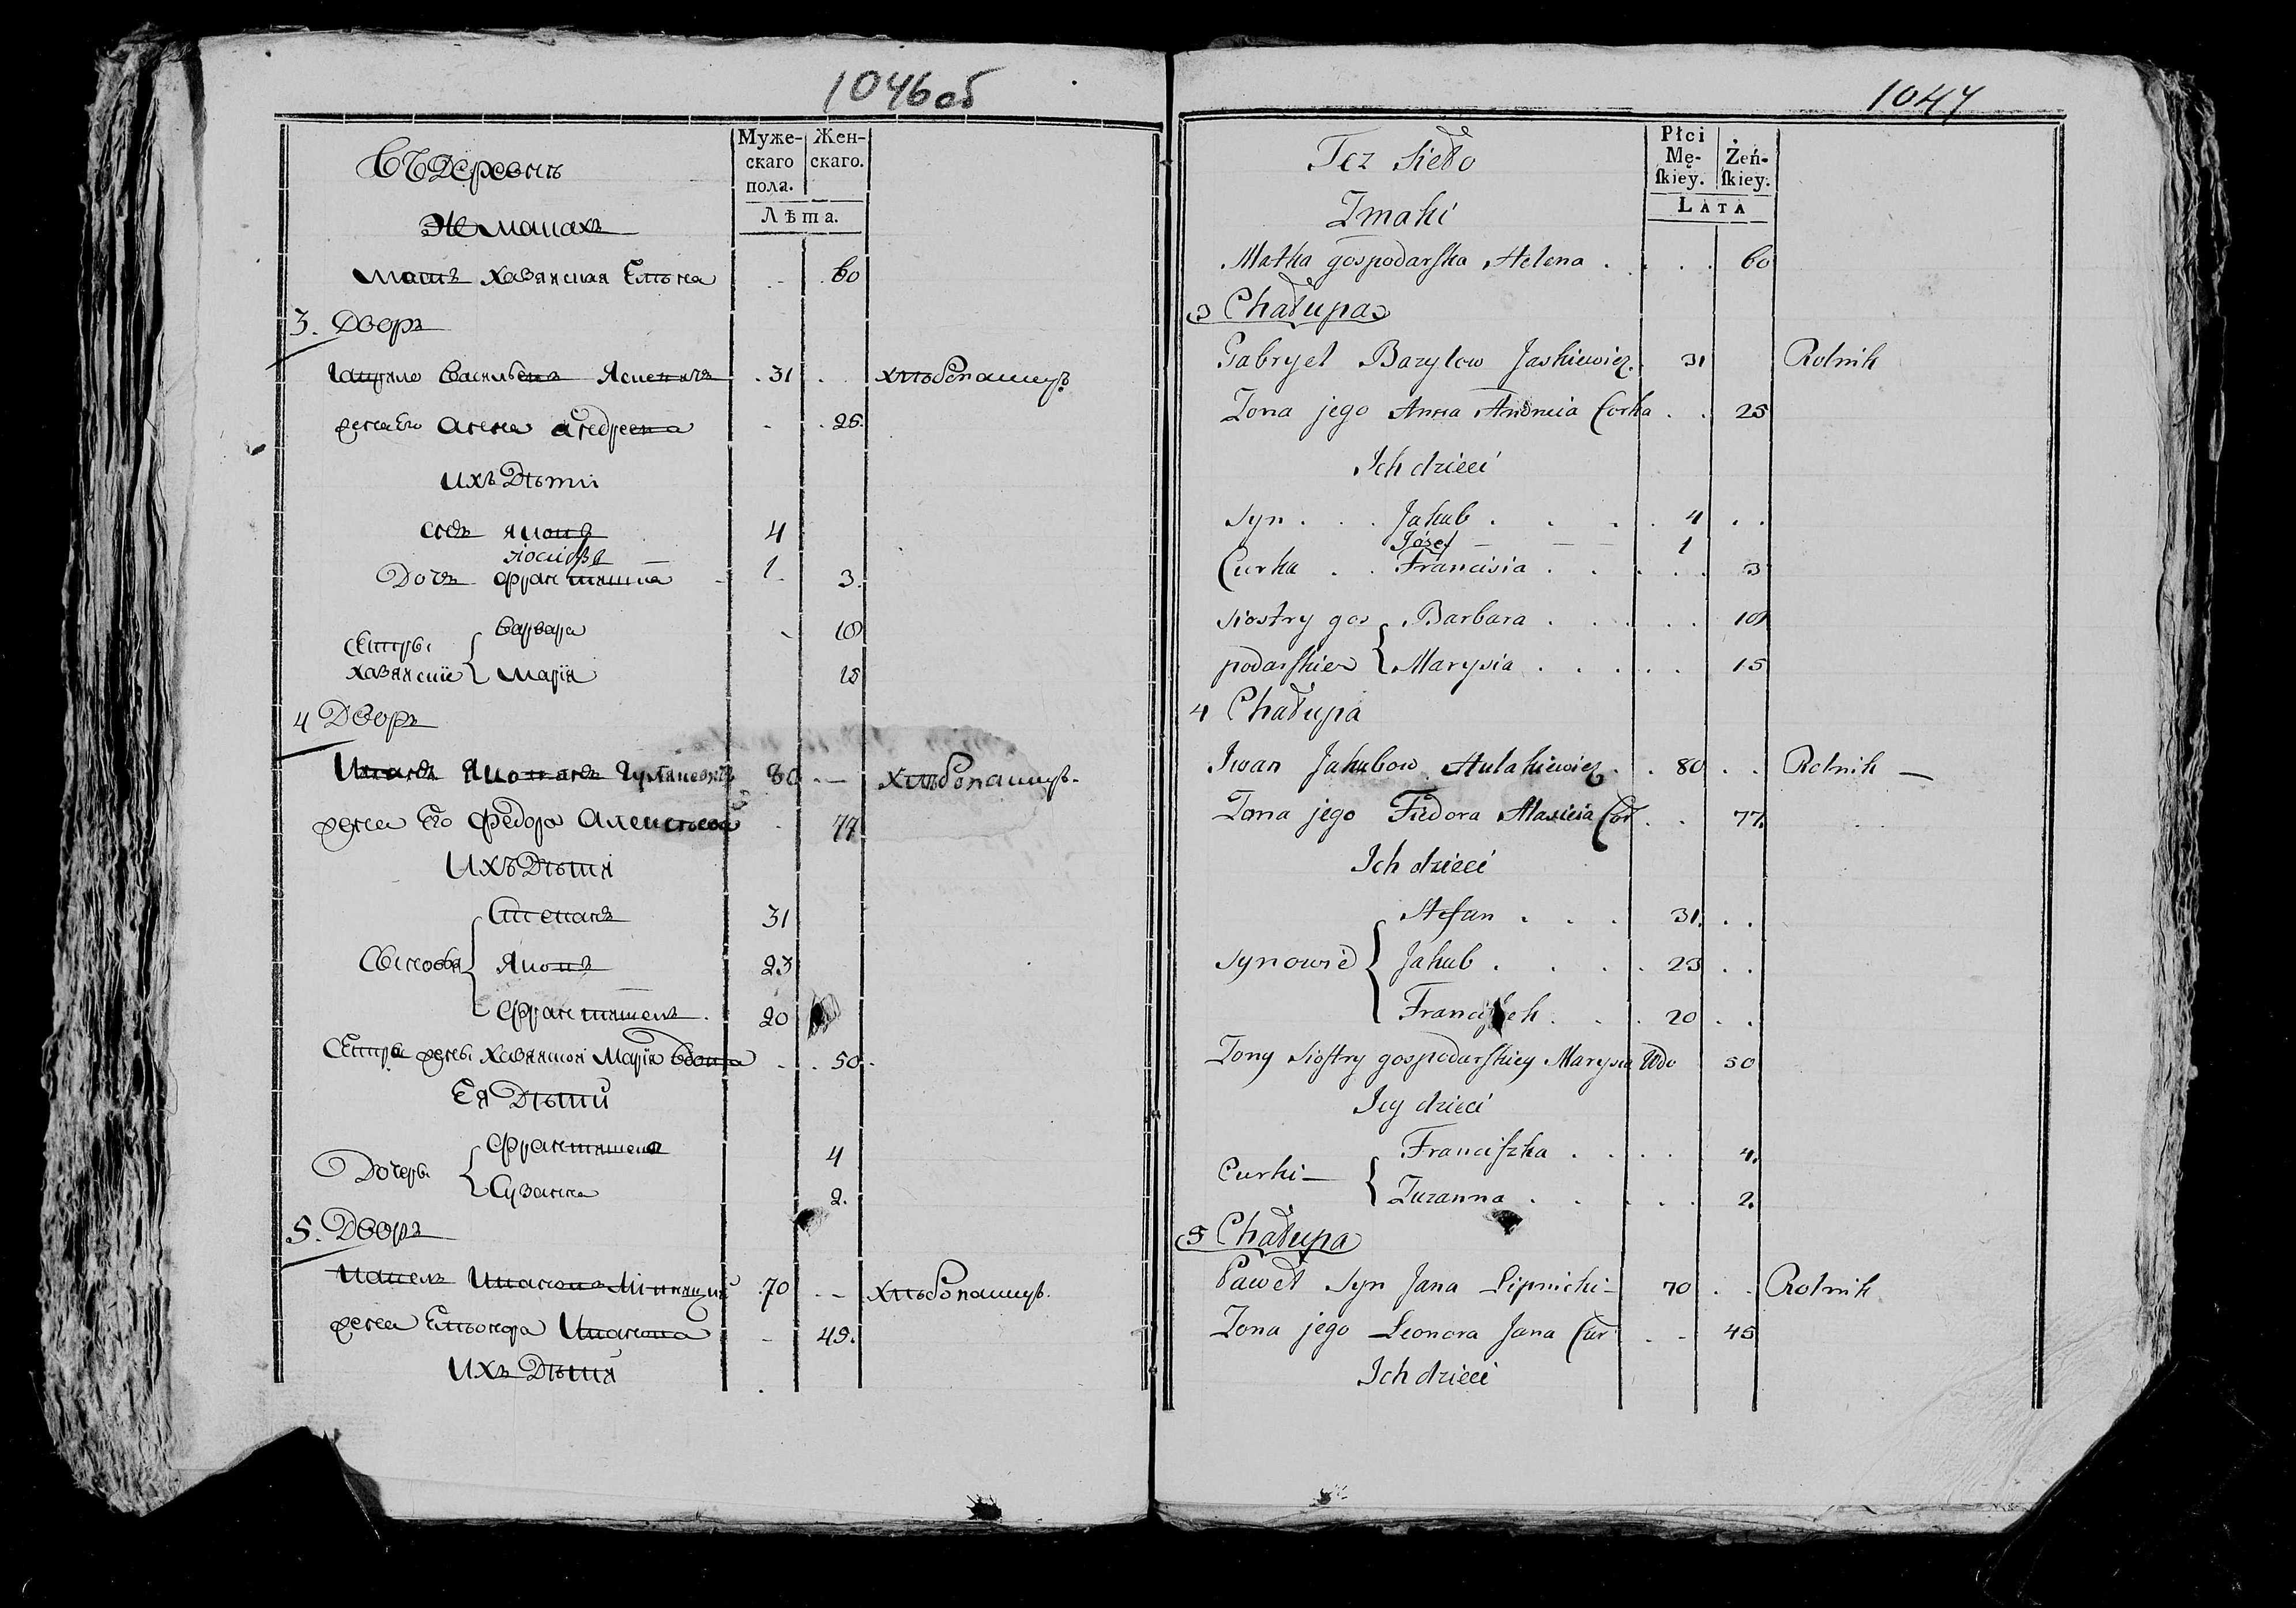 1046об
Муже-
скаго
пола.
Жен-
скаго.
Лѣта.
Въ Деревнѣ
Жмаках
Мать хазянская Елѣна 60
3. Дворъ
Гаврило Василь Яс 31 хлѣбопашцъ
жена Его Анна Андреена 25
ихъ Дѣти
снъ Якопъ 4
Іосифъ 1
Дочь 3
Сестры хазянские { Варвара 10
Марія 15
4 Дворъ
Иванъ Якопавъ 80 — хлѣбопашцъ.
жена Его Федора 77
ихъ Дѣти
Сынове { Степанъ 31
Якопъ 23
20
Сестра жены хазянской Марія вдова 50
Ея Дѣти
Дочеры { 4
Сузанна 2.
5. Дворъ
Павелъ 70 — хлѣбопашцъ.
жена Ельонора Иванова 45.
ихъ Дѣти
1047
Płci
Mę-
skiey.
Żeń-
skiey.
LATA
Tez Sieło
Zmaki
Matka gospodarska Helena . . . . 60
3 Chałupa
Gabryel Bazylow Jaskiewicz. 31 Rolnik
Zona jego Anna Andrucia Corka . . 25
Ich dzieci
Syn . . . Jakub . . . . 4 . .
Józef — — — 1
Curka . . Francisia . . . . . 3
Siostry gos
podarskie { Barbara . . . . . 10
Marysia . . . . . 15
4 Chałupa
Iwan Jakubow Hulakiewicz . . 80 . . Rolnik —
Zona jego Fiedora Alaxieia Cor . . 77.
Ich dzieci
Synowie { Stefan . . . 31. . .
Jakub . . . . 23 . .
Franciszek . . . 20 . .
Zony Siostry gospodarskiey Marysia Wdo 50
Iey dzieci
Curki — { Franciszka . . . . 4.
Zuzanna . . . . . 2.
5 Chałupa
Paweł Syn Jana Lipnicki — 70 . . Rolnik
Zona jego Leonora Jana Cur . - 45
Ich dzieci